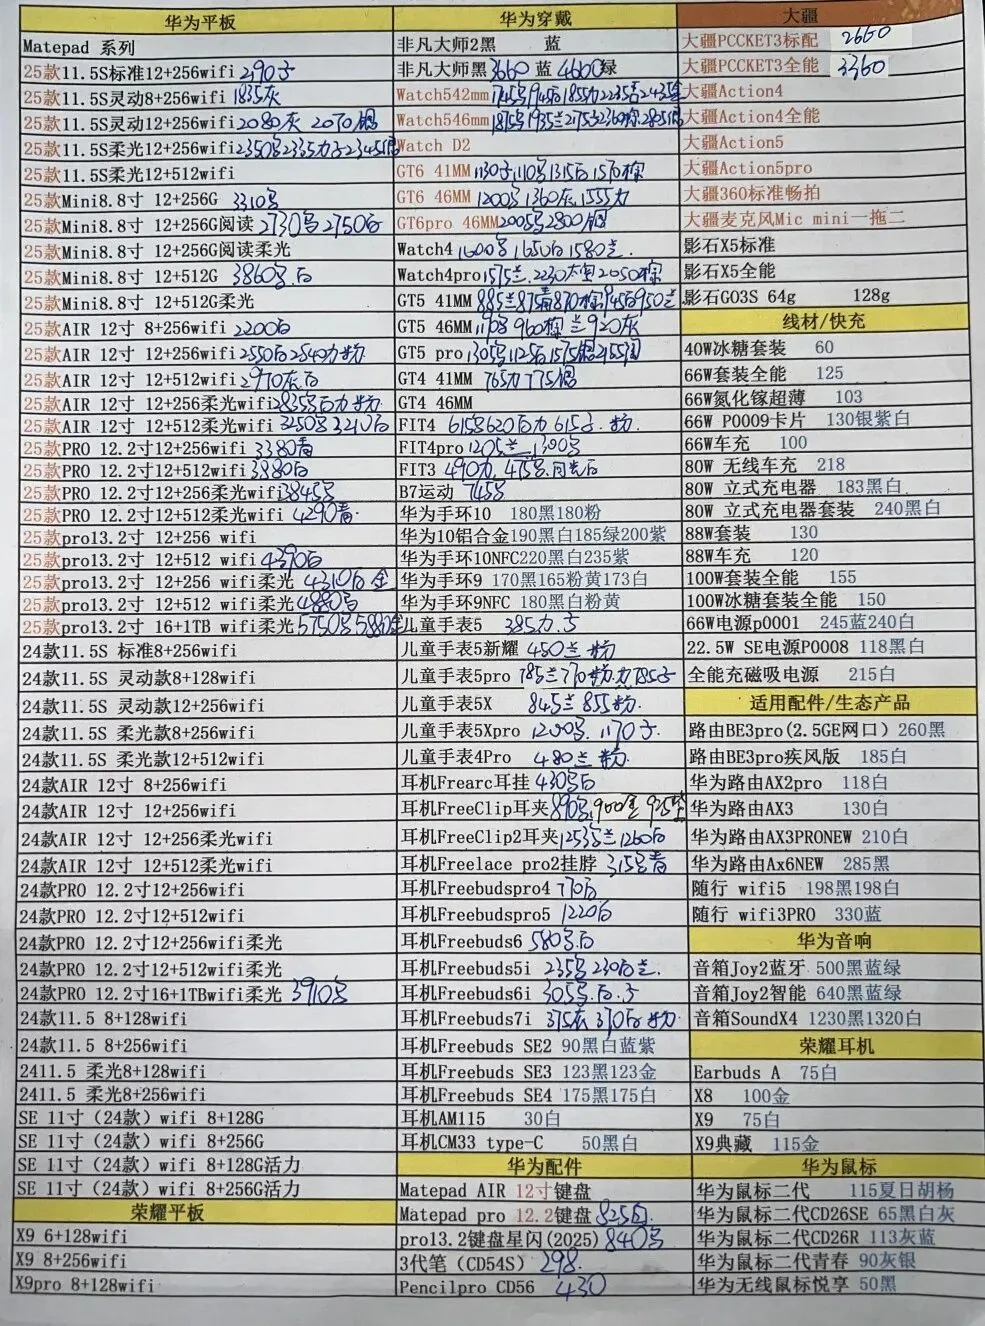 华为平板
Matepad 系列
25款11.5S标准12+256wifi
25款11.5S灵动8+256wifi 1835灰
25款11.5S灵动12+256wifi 2080灰 2070
25款11.5S柔光12+256wifi
25款11.5S柔光12+512wifi
25款Mini8.8寸 12+256G 3310
25款Mini8.8寸 12+256G阅读 2730 2750白
25款Mini8.8寸 12+256G阅读柔光
25款Mini8.8寸 12+512G 3860 白
25款Mini8.8寸 12+512G柔光
25款AIR 12寸 8+256wifi 2200白
25款AIR 12寸 12+256wifi 2550白2540 粉
25款AIR 12寸 12+512wifi 2970灰白
25款AIR 12寸 12+256柔光wifi 2835 白 粉
25款AIR 12寸 12+512柔光wifi 3250 3210白
25款PRO 12.2寸12+256wifi 3380青
25款PRO 12.2寸12+512wifi 3880白
25款PRO 12.2寸12+256柔光wifi 3845
25款PRO 12.2寸12+512柔光wifi 4290青
25款pro13.2寸 12+256 wifi
25款pro13.2寸 12+512 wifi 4390白
25款pro13.2寸 12+256 wifi柔光 4310白金
25款pro13.2寸 12+512 wifi柔光 4880
25款pro13.2寸 16+1TB wifi柔光 5750 5880金
24款11.5S 标准8+256wifi
24款11.5S 灵动款8+128wifi
24款11.5S 灵动款12+256wifi
24款11.5S 柔光款8+256wifi
24款11.5S 柔光款12+512wifi
24款AIR 12寸 8+256wifi
24款AIR 12寸 12+256wifi
24款AIR 12寸 12+256柔光wifi
24款AIR 12寸 12+512柔光wifi
24款PRO 12.2寸12+256wifi
24款PRO 12.2寸12+512wifi
24款PRO 12.2寸12+256wifi柔光
24款PRO 12.2寸12+512wifi柔光
24款PRO 12.2寸16+1TBwifi柔光 3910
24款11.5 8+128wifi
24款11.5 8+256wifi
2411.5 柔光8+128wifi
2411.5 柔光8+256wifi
SE 11寸（24款）wifi 8+128G
SE 11寸（24款）wifi 8+256G
SE 11寸（24款）wifi 8+128G活力
SE 11寸（24款）wifi 8+256G活力
荣耀平板
X9 6+128wifi
X9 8+256wifi
X9pro 8+128wifi
华为穿戴
非凡大师2黑 蓝
非凡大师黑3660 蓝 4660绿
Watch542mm
Watch546mm
Watch D2
GT6 41MM
GT6 46MM 1200 1360灰 1555
GT6pro 46MM 2005 2800
Watch4 1600 1650白 1580兰
Watch4pro 1575兰 2230 2050棕
GT5 41MM 885兰875青870棕 945白950兰
GT5 46MM 960棕 兰920灰
GT5 pro
GT4 41MM 765 775
GT4 46MM
FIT4 615 620白 615 粉
FIT4pro 1205兰 1300
FIT3 490 475
B7运动 745
华为手环10 180黑180粉
华为10铝合金190黑白185绿200紫
华为手环10NFC220黑白235紫
华为手环9 170黑165粉黄173白
华为手环9NFC 180黑白粉黄
儿童手表5 385
儿童手表5新耀 450兰 粉
儿童手表5pro 785兰770粉 785
儿童手表5X 845兰 855粉
儿童手表5Xpro 1200 1170
儿童手表4Pro 480兰 粉
耳机Frearc耳挂 430 白
耳机FreeClip耳夹 890 900金 925
耳机FreeClip2耳夹 1253 兰1260白
耳机Freelace pro2挂脖 315 青
耳机Freebudspro4 770白
耳机Freebudspro5 1220白
耳机Freebuds6 580 白
耳机Freebuds5i 235 230白兰
耳机Freebuds6i 305 白
耳机Freebuds7i 375灰 370白 粉
耳机Freebuds SE2 90黑白蓝紫
耳机Freebuds SE3 123黑123金
耳机Freebuds SE4 175黑175白
耳机AM115 30白
耳机CM33 type-C 50黑白
华为配件
Matepad AIR 12寸键盘
Matepad pro 12.2键盘 825白
pro13.2键盘星闪(2025) 840
3代笔（CD54S） 298
Pencilpro CD56 430
大疆
大疆PCCKET3标配 2660
大疆PCCKET3全能 3360
大疆Action4
大疆Action4全能
大疆Action5
大疆Action5pro
大疆360标准畅拍
大疆麦克风Mic mini一拖二
影石X5标准
影石X5全能
影石GO3S 64g 128g
线材/快充
40W冰糖套装 60
66W套装全能 125
66W氮化镓超薄 103
66W P0009卡片 130银紫白
66W车充 100
80W 无线车充 218
80W 立式充电器 183黑白
80W 立式充电器套装 240黑白
88W套装 130
88W车充 120
100W套装全能 155
100W冰糖套装全能 150
66W电源p0001 245蓝240白
22.5W SE电源P0008 118黑白
全能充磁吸电源 215白
适用配件/生态产品
路由BE3pro(2.5GE网口) 260黑
路由BE3pro疾风版 185白
华为路由AX2pro 118白
华为路由AX3 130白
华为路由AX3PRONEW 210白
华为路由Ax6NEW 285黑
随行 wifi5 198黑198白
随行 wifi3PRO 330蓝
华为音响
音箱Joy2蓝牙 500黑蓝绿
音箱Joy2智能 640黑蓝绿
音箱SoundX4 1230黑1320白
荣耀耳机
Earbuds A 75白
X8 100金
X9 75白
X9典藏 115金
华为鼠标
华为鼠标二代 115夏日胡杨
华为鼠标二代CD26SE 65黑白灰
华为鼠标二代CD26R 113灰蓝
华为鼠标二代青春 90灰银
华为无线鼠标悦享 50黑